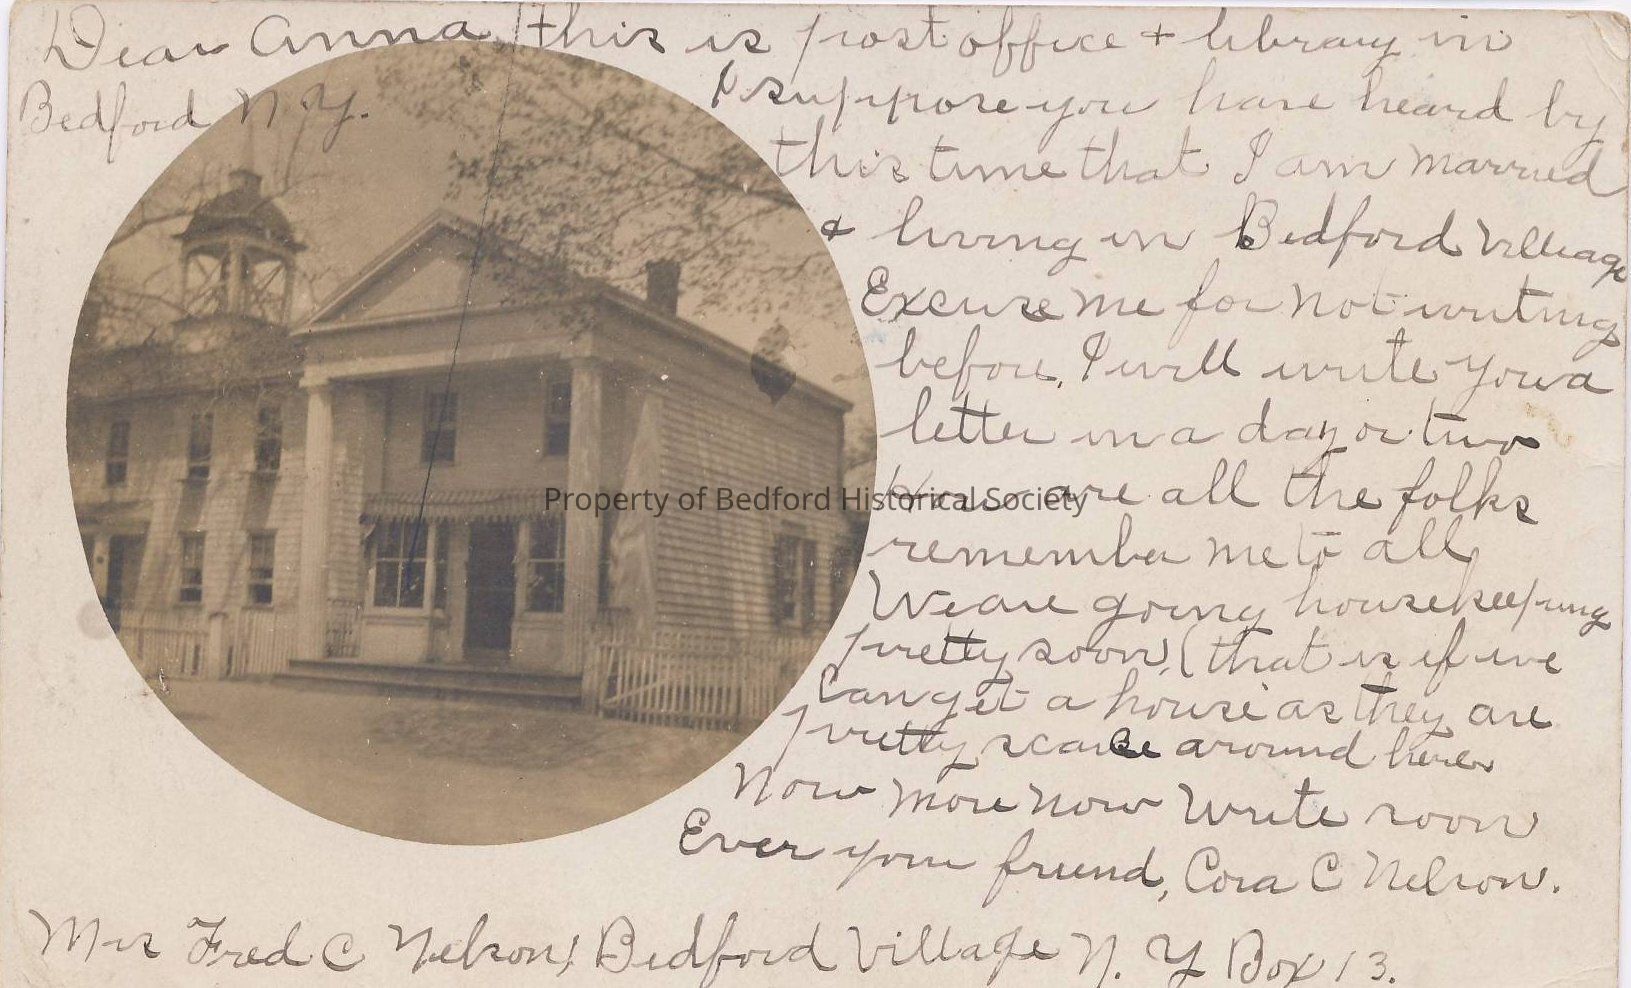 Dear Anna, this is post office & library in
Bedford N.Y.
I suppose you have heard by
this time that I am married
& living in Bedford Villiage
Excuse me for not writing
before, I will write you a
letter in a day or two
How are all the folks
remember me to all
We are going housekeeping
pretty soon, (that is if we
can get a house as they are
pretty scarce around here
Now more now write soon
Ever your friend, Cora C Nelson.
Mrs Fred C Nelson, Bedford Village N. Y Box 13.
Property of Bedford Historical Society